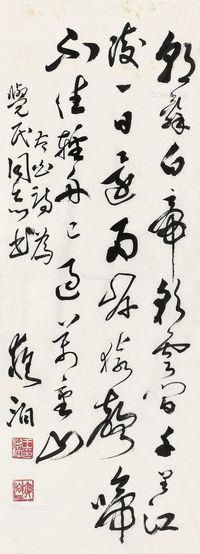 朝辭白帝彩雲間千里江
陵一日還两岸猿聲啼
不住輕舟已過萬重山
太白詩為
覺民同志书